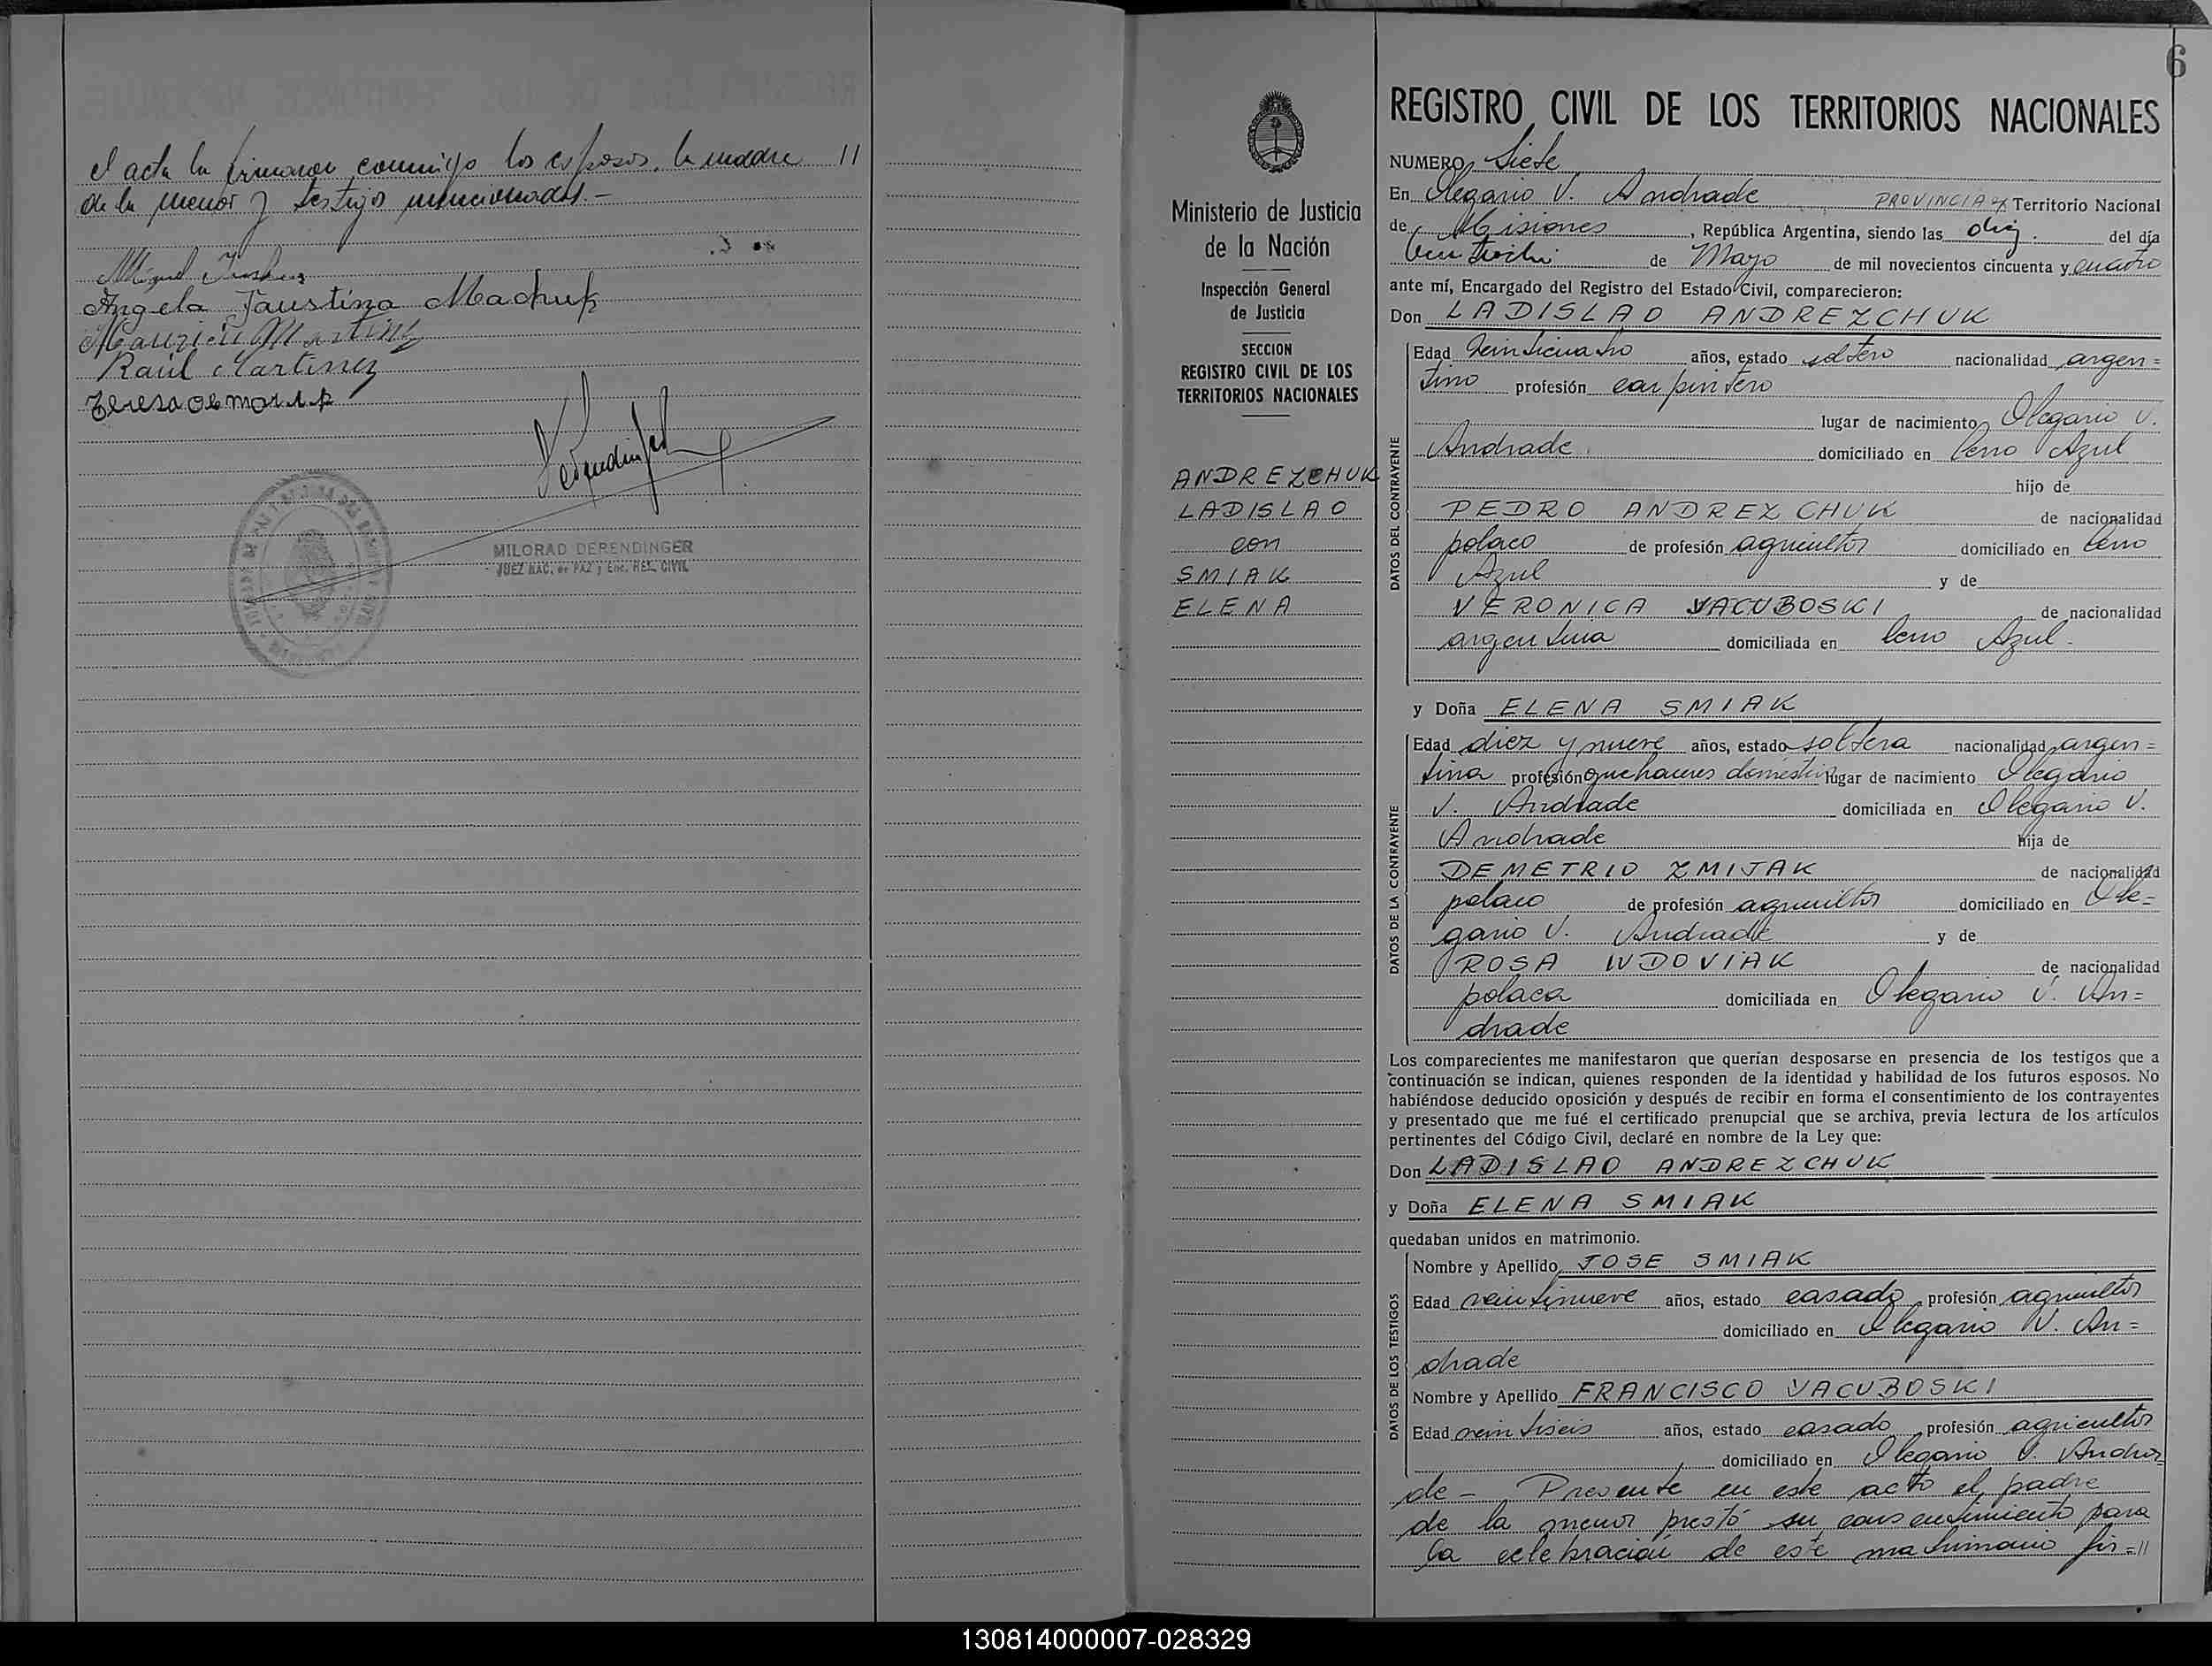 el acta la firmaron conmigo los esposos, la madre //
de la menor y testigos mencionados.-
Miguel
Angela Faustina Machuk
Martinez
Raúl Martinez
Teresa de
MILORAD DERENDINGER
JUEZ NAC. de PAZ y Enc. REG. CIVIL
6
Ministerio de Justicia
de la Nación
Inspección General
de Justicia
SECCION
REGISTRO CIVIL DE LOS
TERRITORIOS NACIONALES
ANDREZCHUK
LADISLAO
con
SMIAK
ELENA
REGISTRO CIVIL DE LOS TERRITORIOS NACIONALES
NUMERO Siete
En Olegario V. Andrade PROVINCIA Territorio Nacional
de Misiones, República Argentina, siendo las diez del día
veintiocho de Mayo de mil novecientos cincuenta y cuatro
ante mí, Encargado del Registro del Estado Civil, comparecieron:
Don LADISLAO ANDREZCHUK
DATOS DEL CONTRAYENTE
Edad veinticuatro años, estado soltero nacionalidad argen=
tino profesión carpintero
lugar de nacimiento Olegario V.
Andrade domiciliado en Cerro Azul
hijo de
PEDRO ANDREZCHUK de nacionalidad
polaco de profesión agricultor domiciliado en Cerro
Azul y de
VERONICA YACUBOSKI de nacionalidad
argentina domiciliada en Cerro Azul.
y Doña ELENA SMIAK
DATOS DE LA CONTRAYENTE
Edad diez y nueve años, estado soltera nacionalidad argen=
tina profesión quehaceres domésticos lugar de nacimiento Olegario
V. Andrade domiciliada en Olegario V.
Andrade hija de
DEMETRIO ZMIJAK de nacionalidad
polaco de profesión agricultor domiciliado en Ole=
gario V. Andrade y de
ROSA WDOVIAK de nacionalidad
polaca domiciliada en Olegario V. An=
drade
Los comparecientes me manifestaron que querían desposarse en presencia de los testigos que a
continuación se indican, quienes responden de la identidad y habilidad de los futuros esposos. No
habiéndose deducido oposición y después de recibir en forma el consentimiento de los contrayentes
y presentado que me fué el certificado prenupcial que se archiva, previa lectura de los artículos
pertinentes del Código Civil, declaré en nombre de la Ley que:
Don LADISLAO ANDREZCHUK
y Doña ELENA SMIAK
quedaban unidos en matrimonio.
DATOS DE LOS TESTIGOS
Nombre y Apellido JOSE SMIAK
Edad veintinueve años, estado casado profesión agricultor
domiciliado en Olegario V. An=
drade
Nombre y Apellido FRANCISCO YACUBOSKI
Edad veintiseis años, estado casado profesión agricultor
domiciliado en Olegario V. Andra=
de - Presente en este acto el padre
de la menor prestó su consentimiento para
la celebración de este matrimonio fir=//
130814000007-028329